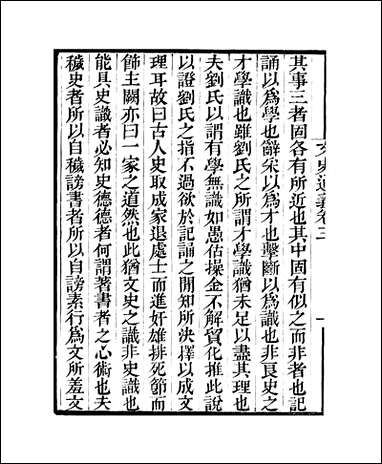 文史通義卷三
一
其事三者固各有所近也其中固有似之而非者也記
誦以爲學也辭采以爲才也擊斷以爲識也非良史之
才學識也雖劉氏之所謂才學識猶未足以盡其理也
夫劉氏以謂有學無識如愚估操金不解貿化推此說
以證劉氏之指不過欲於記誦之閒知所決擇以成文
理耳故曰古人史取成家退處士而進奸雄排死節而
飾主闕亦曰一家之道然也此猶文史之識非史識也
能具史識者必知史德德者何謂著書者之心術也夫
穢史者所以自穢謗書者所以自謗素行爲人所羞文